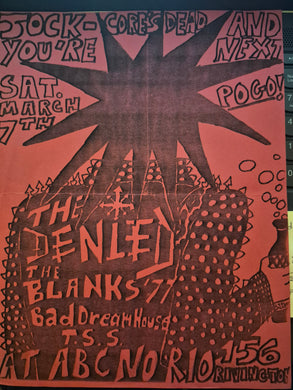 JOCK- CORE'S DEAD AND
YOU'RE NEXT
SAT. POGO!
MARCH
7TH
THE
DENIED
THE
BLANKS 77
Bad Dream House
T.S.S.
AT ABC NO RIO 156
RIVINGTON